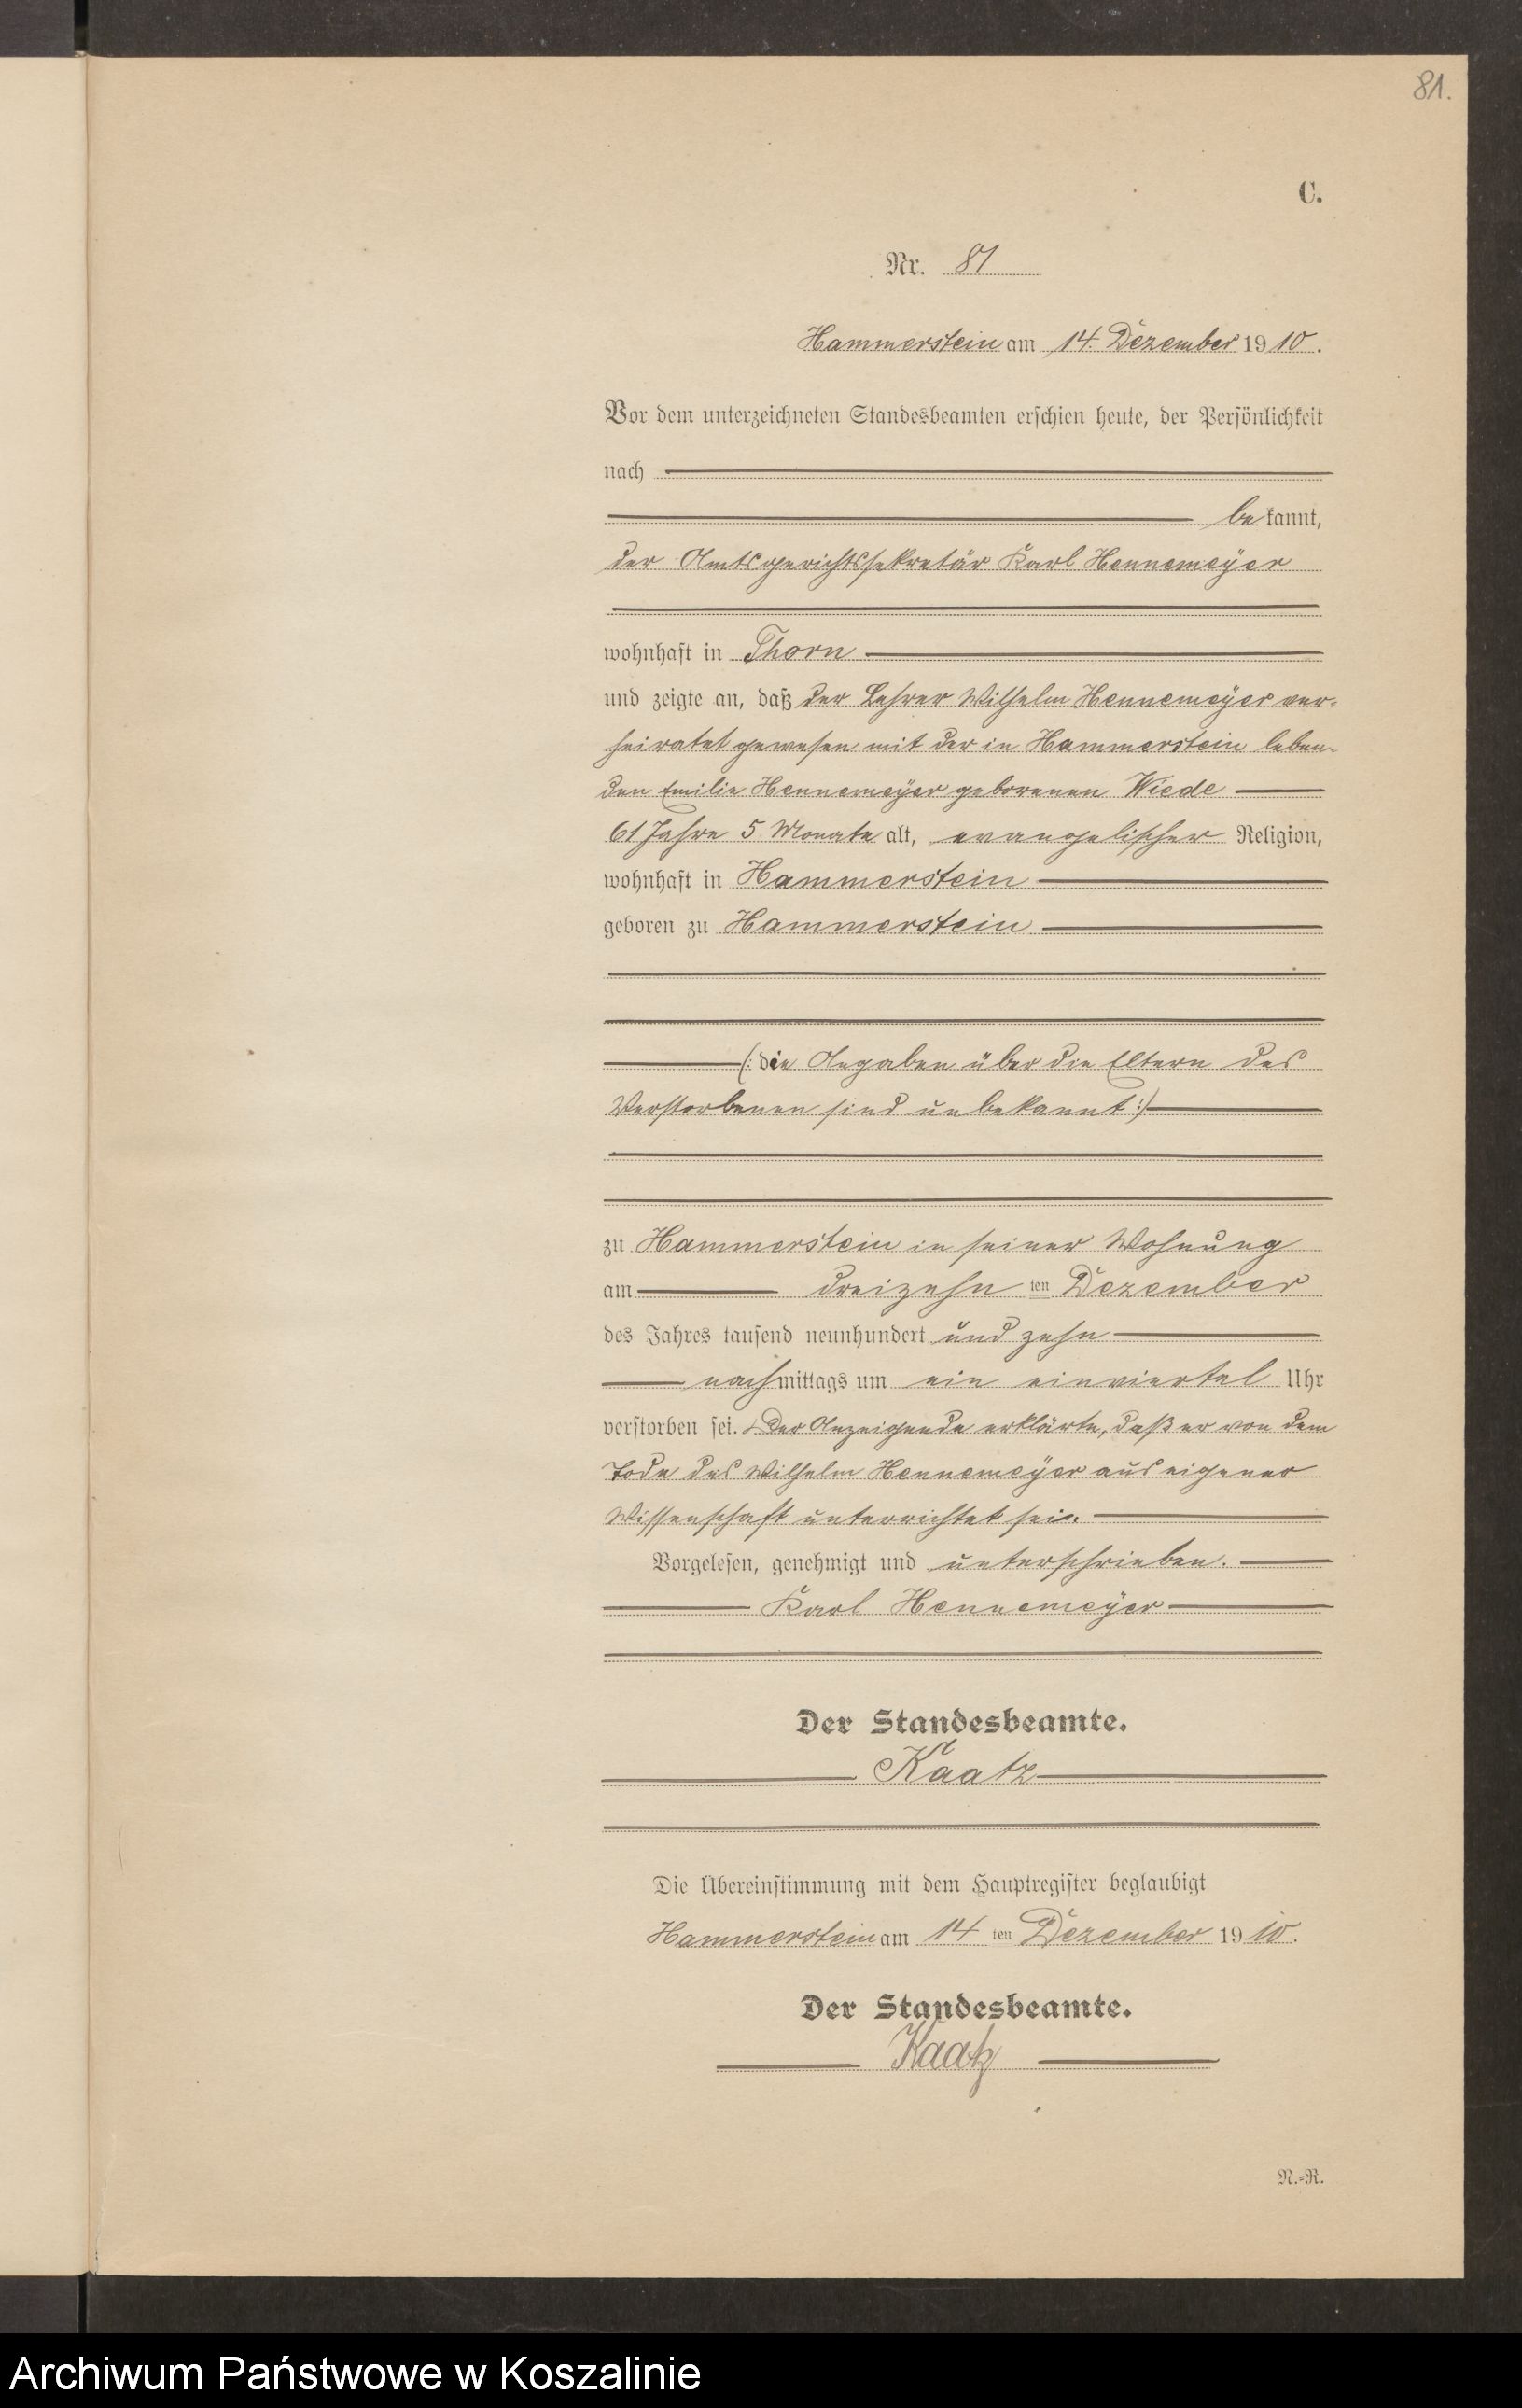 81.
C.
Nr. 81
Hammerstein am 14. Dezember 1910.
Vor dem unterzeichneten Standesbeamten erschien heute, der Persönlichkeit
nach
bekannt,
der Amtsgerichtssekretär Karl Hennemeÿer
wohnhaft in Thorn
und zeigte an, daß der Lehrer Wilhelm Hennemeÿer ver-
heiratet gewesen mit der in Hammerstein leben-
den Emilie Hennemeÿer geborenen Wiede
61 Jahre 5 Monate alt, evangelischer Religion,
wohnhaft in Hammerstein
geboren zu Hammerstein
(: die Angaben über die Eltern des
Verstorbenen sind unbekannt :)
zu Hammerstein in seiner Wohnung
am dreizehn ten Dezember
des Jahres tausend neunhundert und zehn
nachmittags um ein einviertel Uhr
verstorben sei. Der Anzeigende erklärte, daß er von dem
Tode des Wilhelm Hennemeÿer aus eigener
Wissenschaft unterrichtet sei.
Vorgelesen, genehmigt und unterschrieben.
Karl Hennemeÿer
Der Standesbeamte.
Kaatz
Die Übereinstimmung mit dem Hauptregister beglaubigt
Hammerstein am 14 ten Dezember 1910.
Der Standesbeamte.
Kaatz
N.-R.
Archiwum Państwowe w Koszalinie